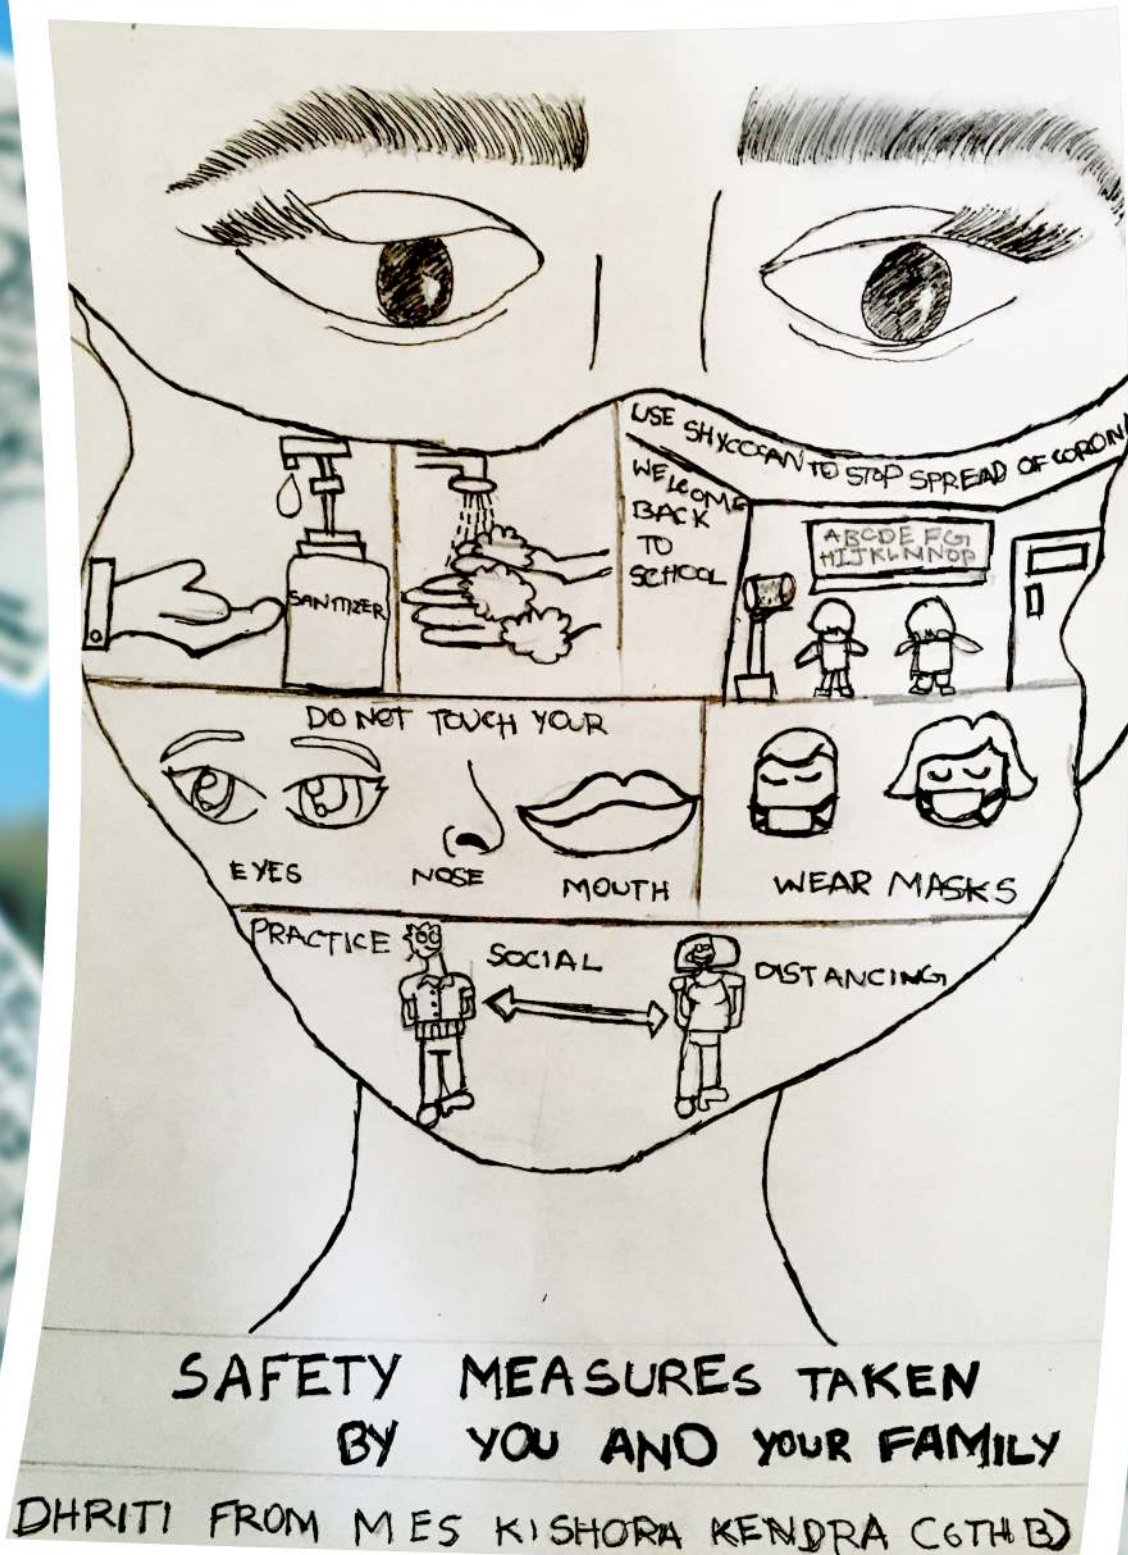 USE SHYCOCAN TO STOP SPREAD OF CORONA
WELCOME
BACK
TO
SCHOOL
ABCDE FG
HIJKLMNOP
SANITIZER
DO NOT TOUCH YOUR
EYES
NOSE
MOUTH
WEAR MASKS
PRACTICE SOCIAL DISTANCING
SAFETY MEASURES TAKEN
BY YOU AND YOUR FAMILY
DHRITI FROM MES KISHORA KENDRA (6TH B)